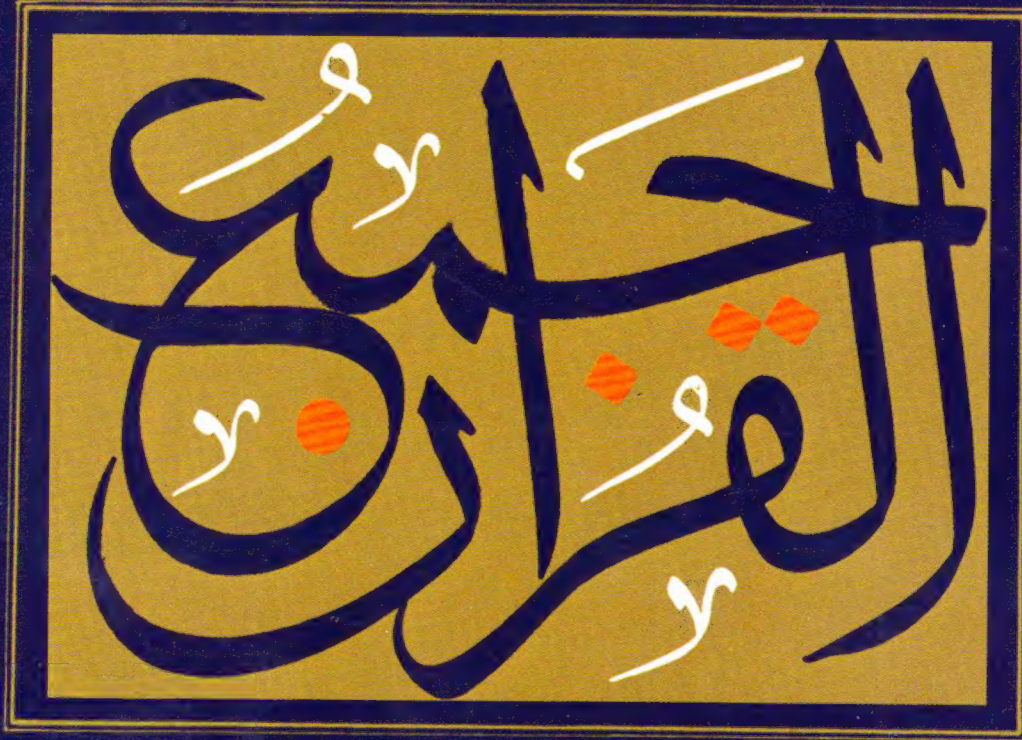 الجامع
القران